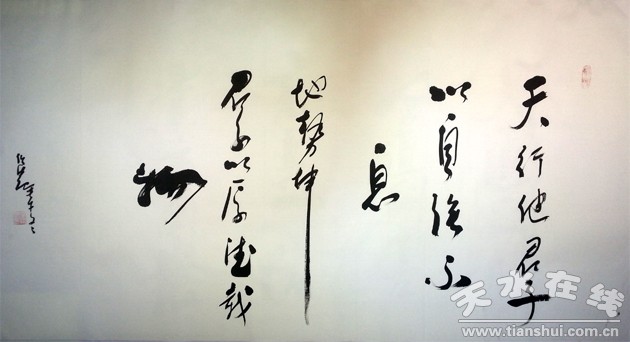 天行健君子
以自強不
息
地勢坤
君子以厚德載
物
天水在线
www.tianshui.com.cn